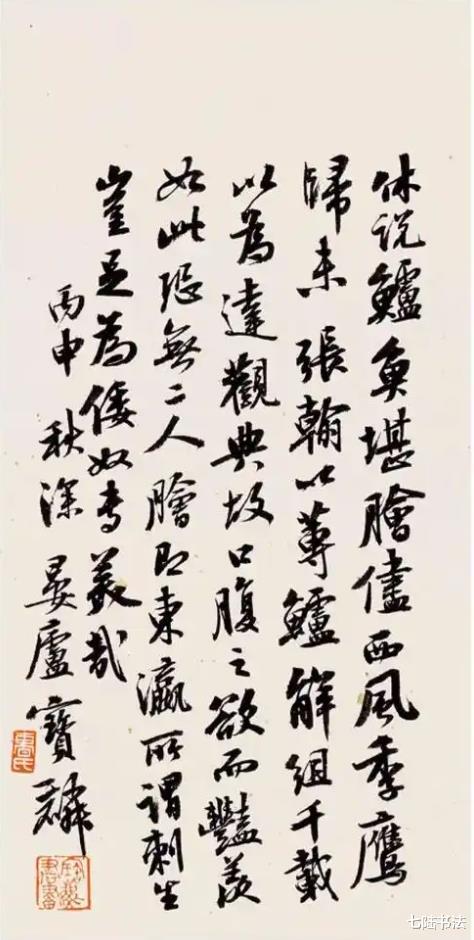 休说鱸魚堪膾儘西风季鹰
歸未張翰以蓴鱸解组千載
以為達觀典故口腹之欲而豔羨
如此恐無二人膾即東瀛所謂刺生
豈足為倭奴专美哉
丙申秋深晏廬寶麟
七陆书法